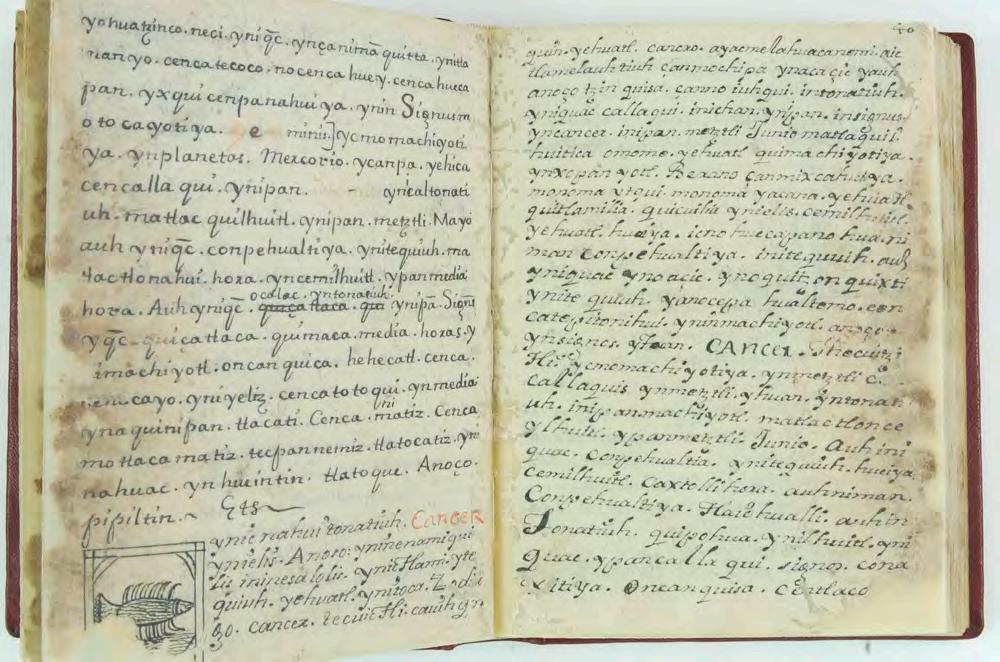 yohuatzinco. neci. yniq̃c. yncanimã quitta. ynitla
nanyo. cenca tecoco. no cenca huey. cenca hueca
pan. yxqui cenpanahuiya. ynin Signum
otocayotiya. e minis ycmomachiyoti
ya. ynplanetos. Mercorio. ycanpa. yehica
cencalla qui. ynipan. yn caltonati
uh. matlac quilhuitl. ynipan. metztli. Mayo
auh yniq̃c. conpehualtiya. ynitequiuh. ma
tlactlonahui. hora. yncemilhuitl. ypan media
hora. Auh yniq̃c. ocalac. yntonatiuh. ynipã. Signũ
yq̃c quicatlaca. quimaca. media. horas. y
imachiyotl. oncan quica. hehecatl. cenca.
cayo. yniyeliz. cenca totoqui. yn media
yna quinipan. tlacati. Cenca. matiz. Cenca
motlacamatiz. tecpannemiz. tlatocatiz. yni
nahuac. yn hueintin. tlatoque. Anoço.
pipiltin. ~ Ets
ynic nahui tonatiuh. CANCER
ynielis. Anoço. yninenamiqui
lis ininesalolis. ynictlami. yte
quiuh. yehuatl. ynitoca. Zodia
go. cancer. tecuictli. cauih
40
quin. yehuatl. cancro. ayacmelahuacanemi. aic
tlamelauhtiuh çanmochipa ynacacic yauh
anoço tzinquisa. çanno iuhqui. intonatiuh.
yniquac callaqui. inichan. ynipan. insignus
yncancer. inipan. metztli Junio matlaquil
huitica omome. yehuatl quimachiyotiya.
ynxopanyotl. Berano çanmixcahuiya.
monoma ytqui. monoma yacana. yehuatl
quitlamilia. quicuilia ynielis. cemilhuitl.
yehuatl. hueya. icnohuecapanohua. ni
man conpehualtiya. initequiuh. auh
yniquac ynoacic. ynoquitzonquixti
ynitequiuh. yanocepa hualtemo. cen
catepitonihui. yninmachiyotl. anoço
ynsignos. ytoan. CANCER. Thecuitz
tli. ycmomachiyotiya. ynmetztli
callaquis ynmetztli. yhuan. yntonati
uh. inipanmachiyotl. matlactlonce
ylhuitl. ypanmetztli Junio. Auh ini
quac. conpehualtia. ynitequiuh. hueiya
cemilhuitl. caxtolli hora. auhniman.
Conpehualtiya. tlaiohualli. auhin
Tonatiuh. quipohua. ynilhuitl. yni
quac. ypancallaqui. signos. cona
xitiya. Oncanquisa. centlaco